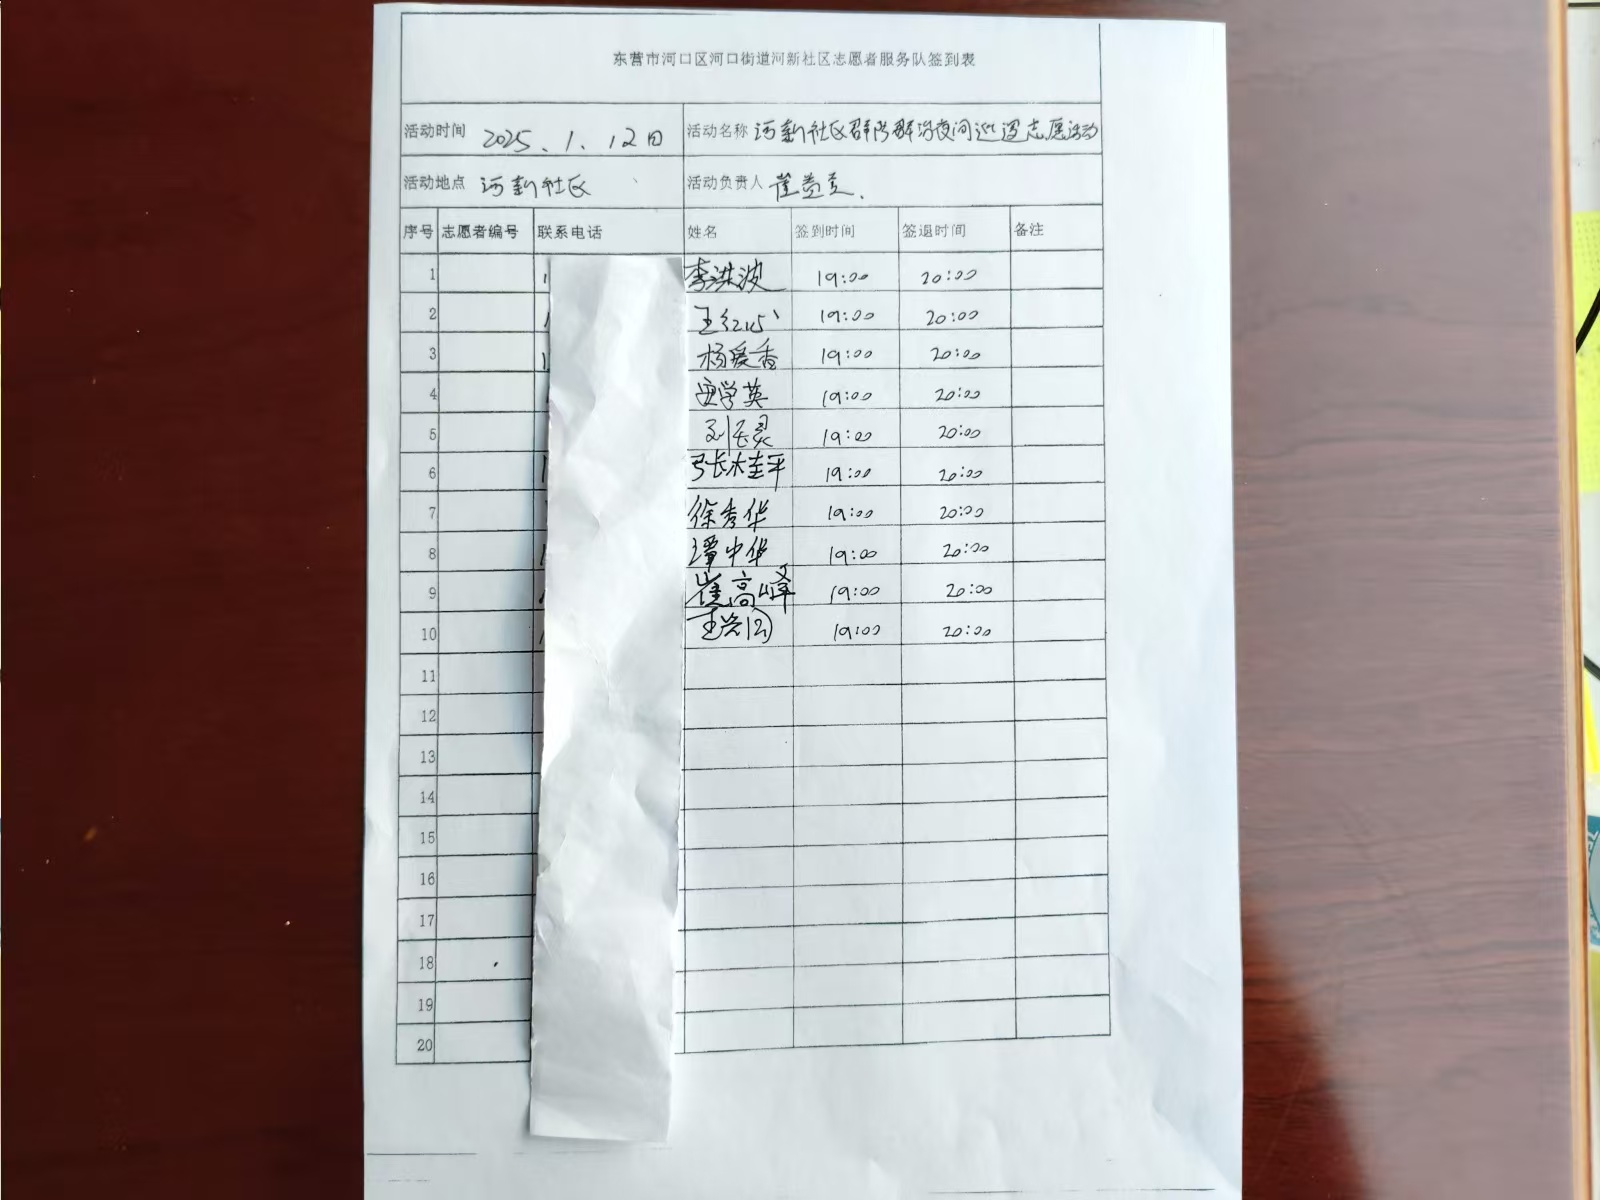 东营市河口区河口街道河新社区志愿者服务队签到表
活动时间 2025、1、12日 活动名称 河新社区群防群治夜间巡逻志愿活动
活动地点 河新社区 活动负责人 崔
序号 志愿者编号 联系电话 姓名 签到时间 签退时间 备注
1 李洪波 19:00 20:00
2 王红心 19:00 20:00
3 杨爱香 19:00 20:00
4 学英 19:00 20:00
5 刘 19:00 20:00
6 19:00 20:00
7 徐秀华 19:00 20:00
8 中华 19:00 20:00
9 崔高峰 19:00 20:00
10 王 19:00 20:00
11
12
13
14
15
16
17
18
19
20